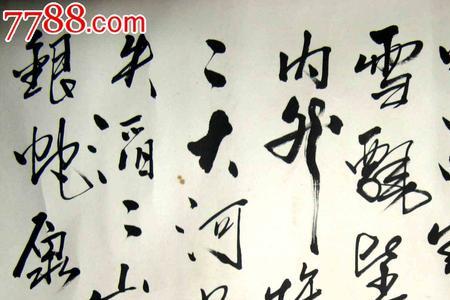 7788.com
雪飘望
内外
〻大河
失滔〻山
银蛇原